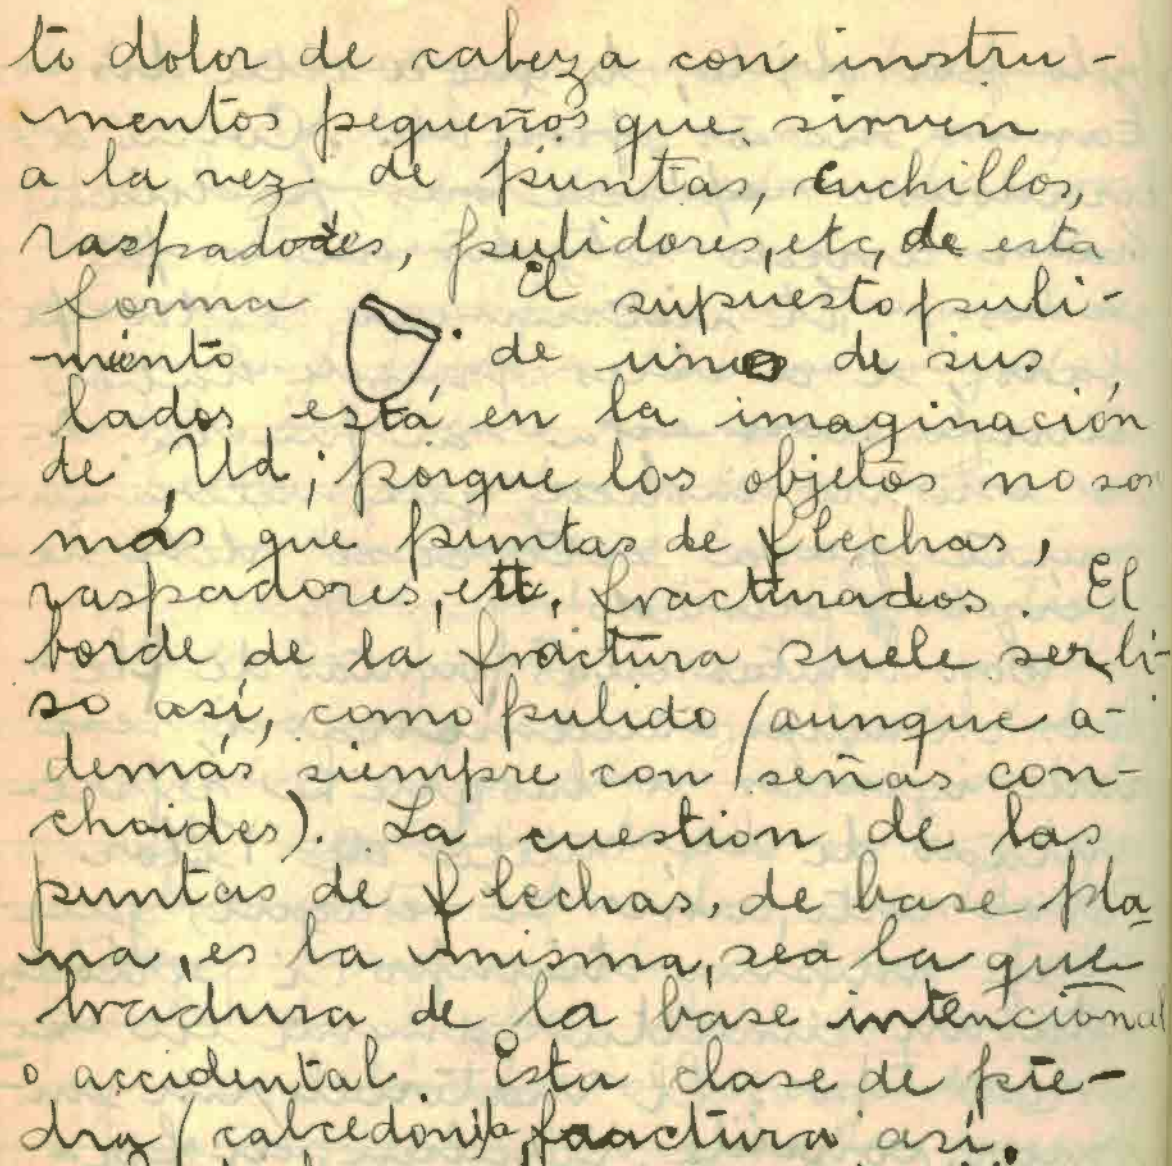 to dolor de cabeza con instru-
mentos pequeños que sirven
a la vez de puntas, cuchillos,
raspadores, pulidores, etc, de esta
forma . El supuesto puli-
miento de uno de sus
lados está en la imaginación
de Ud; porque los objetos no son
más que puntas de flechas,
raspadores, etc, fracturados. El
borde de la fractura suele ser li-
so así, como pulido (aunque a-
demás siempre con señas con-
choides). La cuestion de las
puntas de flechas, de base pla-
na, es la misma, sea la que-
bradura de la base intencional
o accidental. Esta clase de pie-
dra (calcedonia) fractura así.